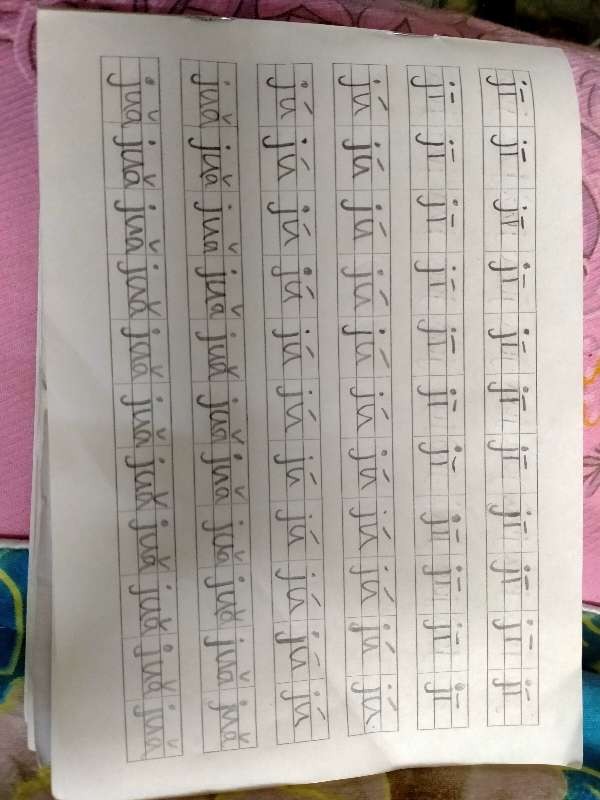 jī jī jī jī jī jī jī jī jī jī jī
jī jī jī jī jī jī jī jī jī jī jī
jú jú jú jú jú jú jú jú jú jú jú
jú jú jú jú jú jú jú jú jú jú jú
juǎ juǎ juǎ juǎ juǎ juǎ juǎ juǎ juǎ juǎ juǎ
juǎ juǎ juǎ juǎ juǎ juǎ juǎ juǎ juǎ juǎ juǎ